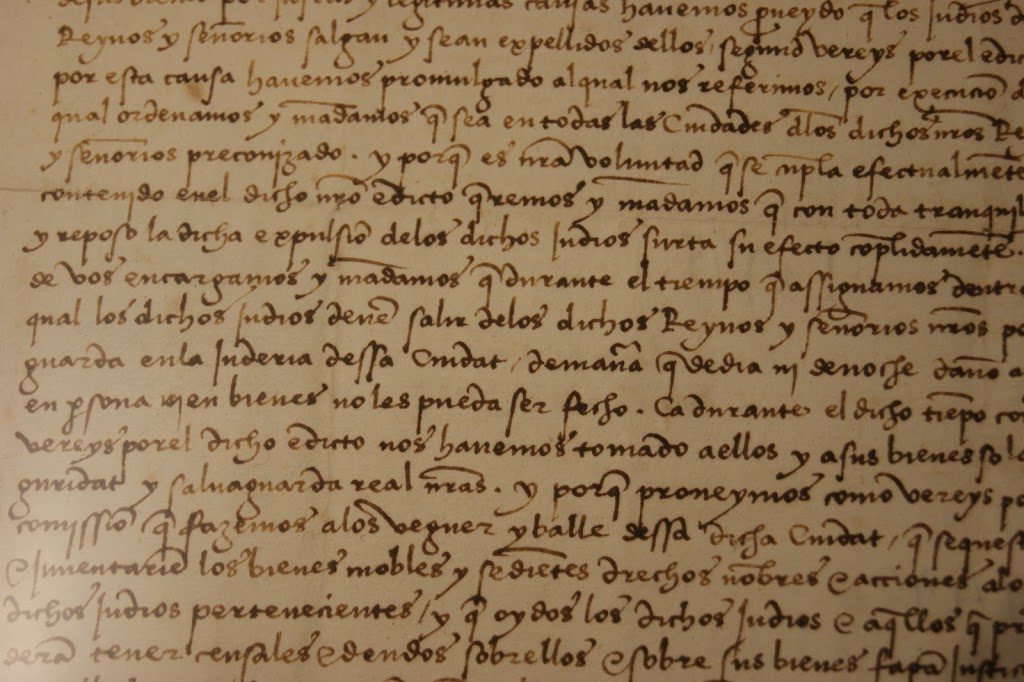 por justas y legitimas causas hauemos proueydo q̃ los Judios d
Reynos y señorios salgan y sean expellidos dellos, segund vereys por el edic
por esta causa hauemos promulgado al qual nos referimos, por execucio d
qual ordenamos y mãdamos q̃ sea en todas las Ciudades dlos dichos nr̃os Re
y señorios preconizado. y porq̃ es nr̃a voluntad q̃ se cũpla efectualmẽte
contenido en el dicho nr̃o edicto q̃remos y mãdamos q̃ con toda tranquil
y reposo la dicha expulsiõ delos dichos Judios surta su efecto cõplidamẽte.
de vos encargamos y mãdamos q̃ durante el tiempo q̃ assignamos dentro
qual los dichos judios deuẽ salir delos dichos Reynos y señorios nr̃os po
guarda en la Juderia dessa Ciudat, de mañ̃a q̃ de dia ni de noche daño a
en p̱sona ni en bienes no les pueda ser fecho. Ca durante el dicho tiẽpo co
vereys por el dicho edicto nos hauemos tomado a ellos y a sus bienes so la
guridat y saluaguarda real nr̃as. y porq̃ proueymos como vereys po
comissiõ q̃ fazemos alos veguer y balle dessa dicha Ciudat, q̃ sequest
& Jnuentariẽ los bienes mobles y sediẽtes drechos nõbres & acciones alo
dichos Judios pertenecientes, y q̃ oydos los dichos Judios & aq̃llos q̃ pr
derã tener censales & deudos sobrellos & sobre sus bienes fagã Justic